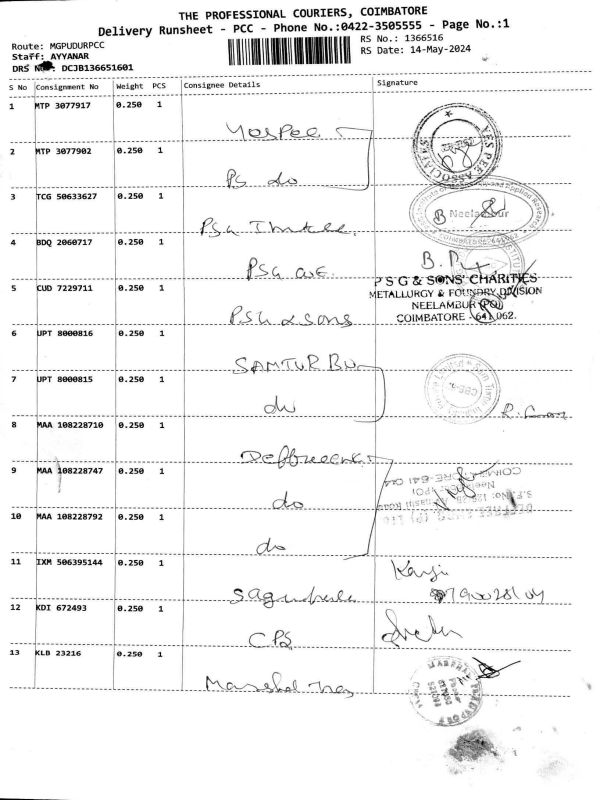 THE PROFESSIONAL COURIERS, COIMBATORE
Delivery Runsheet - PCC - Phone No.:0422-3505555 - Page No.:1
Route: MGPUDURPCC
RS No.: 1366516
Staff: AYYANAR
RS Date: 14-May-2024
DRS No.: DCJB136651601
S No Consignment No Weight PCS Consignee Details Signature
1 MTP 3077917 0.250 1
Yespee
2 MTP 3077902 0.250 1
YES PEE ASSOCIATES
PS do
3 TCG 50633627 0.250 1
Neelambur
PSG
4 BDQ 2060717 0.250 1
PSG
5 CUD 7229711 0.250 1
P S G & SONS' CHARITIES
METALLURGY & FOUNDRY DIVISION
NEELAMBUR (PO)
COIMBATORE - 641 062.
PSG & Sons
6 UPT 8000816 0.250 1
7 UPT 8000815 0.250 1
do
8 MAA 108228710 0.250 1
9 MAA 108228747 0.250 1
do
10 MAA 108228792 0.250 1
do
11 IXM 506395144 0.250 1
12 KDI 672493 0.250 1
CPS
13 KLB 23216 0.250 1